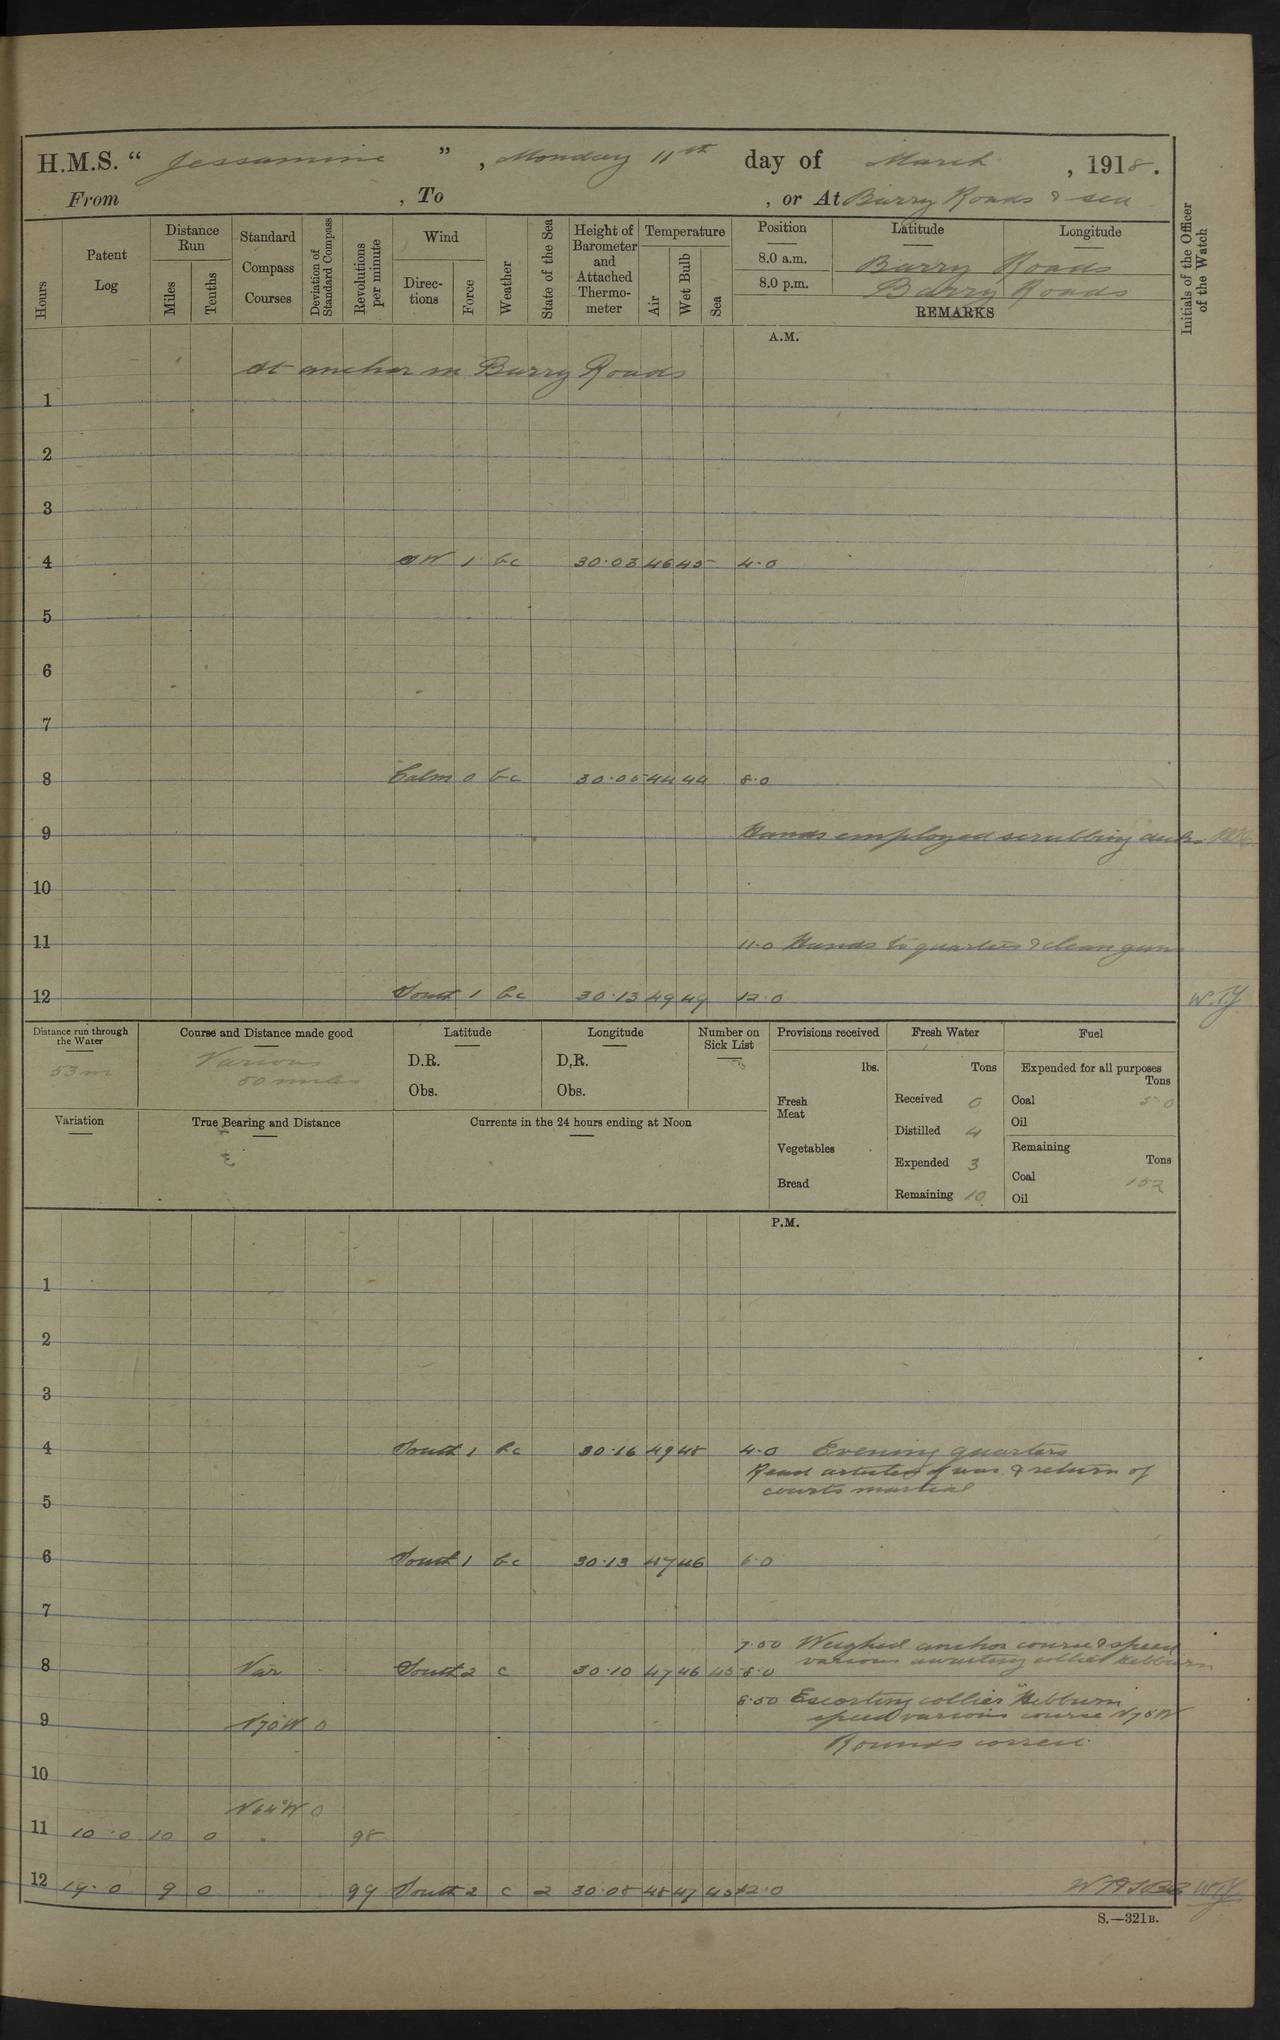 H.M.S. “ Jessamine ” , Monday 11th day of March , 1918.
From , To , or At Barry Roads & sea
Hours
Patent Log
Distance Run
Miles
Tenths
Standard Compass Courses
Deviation of Standard Compass
Revolutions per minute
Wind
Directions
Force
Weather
State of the Sea
Height of Barometer and Attached Thermometer
Temperature
Air
Wet Bulb
Sea
Position Latitude Longitude
8.0 a.m. Barry Roads
8.0 p.m. Barry Roads
REMARKS
Initials of the Officer of the Watch
A.M.
At anchor in Barry Roads
1
2
3
4 W 1 bc 30.03 46 45 4.0
5
6
7
8 Calm 0 bc 30.05 44 44 8.0
9 Hands employed scrubbing decks
10
11 11.0 Hands to quarters & clean guns
12 South 1 bc 30.13 49 49 12.0 W.TJ
Distance run through the Water
53m
Course and Distance made good
Various
50 miles
Latitude
D.R.
Obs.
Longitude
D.R.
Obs.
Number on Sick List
3
Provisions received
lbs.
Fresh Meat
Vegetables
Bread
Fresh Water
Tons
Received 0
Distilled 4
Expended 3
Remaining 10
Fuel
Expended for all purposes
Tons
Coal 5.0
Oil
Remaining
Tons
Coal 102
Oil
Variation
True Bearing and Distance
Currents in the 24 hours ending at Noon
P.M.
1
2
3
4 South 1 bc 30.16 49 48 4.0 Evening quarters
Read articles of war & return of
courts martial
5
6 South 1 bc 30.13 47 46 6.0
7
7.50 Weighed anchor course & speed
8 Var South 2 c 30.10 47 46 45 8.0 various awaiting collier Hebburn
8.50 Escorting collier "Hebburn"
speed various course N70W
9 N70W 0
Rounds correct
10
N64°W 0
11 10.0 10 0 " 98
12 19.0 9 0 " 99 South 2 c 2 30.08 48 47 45 12.0 WTJ
S.—321B.